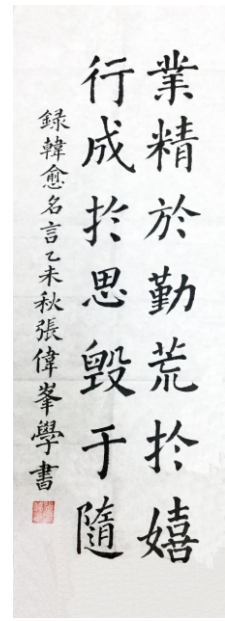 業精於勤荒扵嬉
行成扵思毁于隨
録韓愈名言乙未秋張偉峯學書